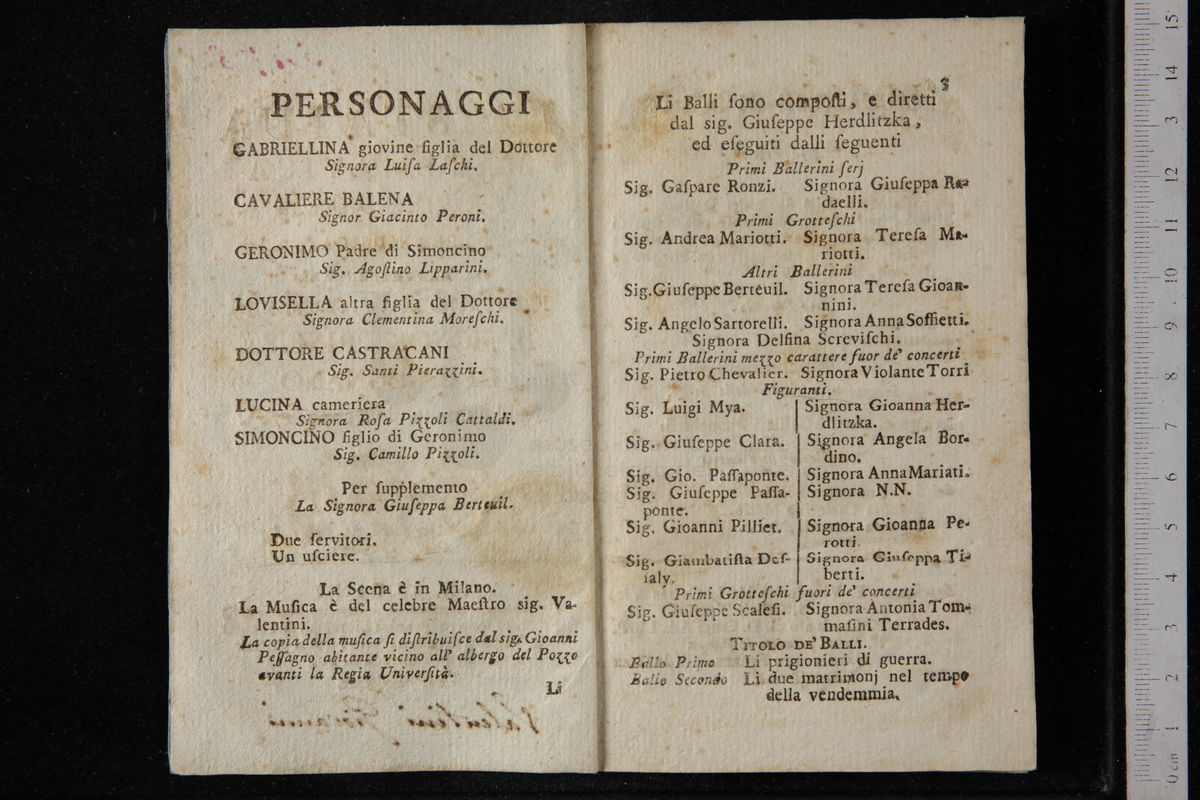 PERSONAGGI
GABRIELLINA giovine figlia del Dottore
Signora Luiſa Laſchi.
CAVALIERE BALENA
Signor Giacinto Peroni.
GERONIMO Padre di Simoncino
Sig. Agoſtino Lipparini.
LOVISELLA altra figlia del Dottore
Signora Clementina Moreſchi.
DOTTORE CASTRACANI
Sig. Santi Pierazzini.
LUCINA cameriera
Signora Roſa Pizzoli Cattaldi.
SIMONCINO figlio di Geronimo
Sig. Camillo Pizzoli.
Per ſupplemento
La Signora Giuſeppa Berteuil.
Due ſervitori.
Un uſciere.
La Scena è in Milano.
La Muſica è del celebre Maeſtro sig. Va-
lentini.
La copia della muſica ſi diſtribuiſce dal sig. Gioanni
Peſſagno abitante vicino all' albergo del Pozzo
avanti la Regia Univerſità.
Li
3
Li Balli ſono compoſti, e diretti
dal sig. Giuſeppe Herdlitzka,
ed eſeguiti dalli ſeguenti
Primi Ballerini ſerj
Sig. Gaſpare Ronzi. Signora Giuſeppa Ra-
daelli.
Primi Grotteſchi
Sig. Andrea Mariotti. Signora Tereſa Ma-
riotti.
Altri Ballerini
Sig. Giuſeppe Berteuil. Signora Tereſa Gioan-
nini.
Sig. Angelo Sartorelli. Signora Anna Soffietti.
Signora Delfina Screviſchi.
Primi Ballerini mezzo carattere fuor de' concerti
Sig. Pietro Chevalier. Signora Violante Torri
Figuranti.
Sig. Luigi Mya. Signora Gioanna Her-
dlitzka.
Sig. Giuſeppe Clara. Signora Angela Bor-
dino.
Sig. Gio. Paſſaponte. Signora Anna Mariati.
Sig. Giuſeppe Paſſa- Signora N.N.
ponte.
Sig. Gioanni Pilliet. Signora Gioanna Pe-
rotti.
Sig. Giambatiſta Deſ- Signora Giuſeppa Ti-
ialy. berti.
Primi Grotteſchi fuori de' concerti
Sig. Giuſeppe Scaleſi. Signora Antonia Tom-
maſini Terrades.
TITOLO DE' BALLI.
Ballo Primo Li prigionieri di guerra.
Ballo Secondo Li due matrimonj nel tempo
della vendemmia.
0 cm 1 2 3 4 5 6 7 8 9 10 11 12 3 14 15